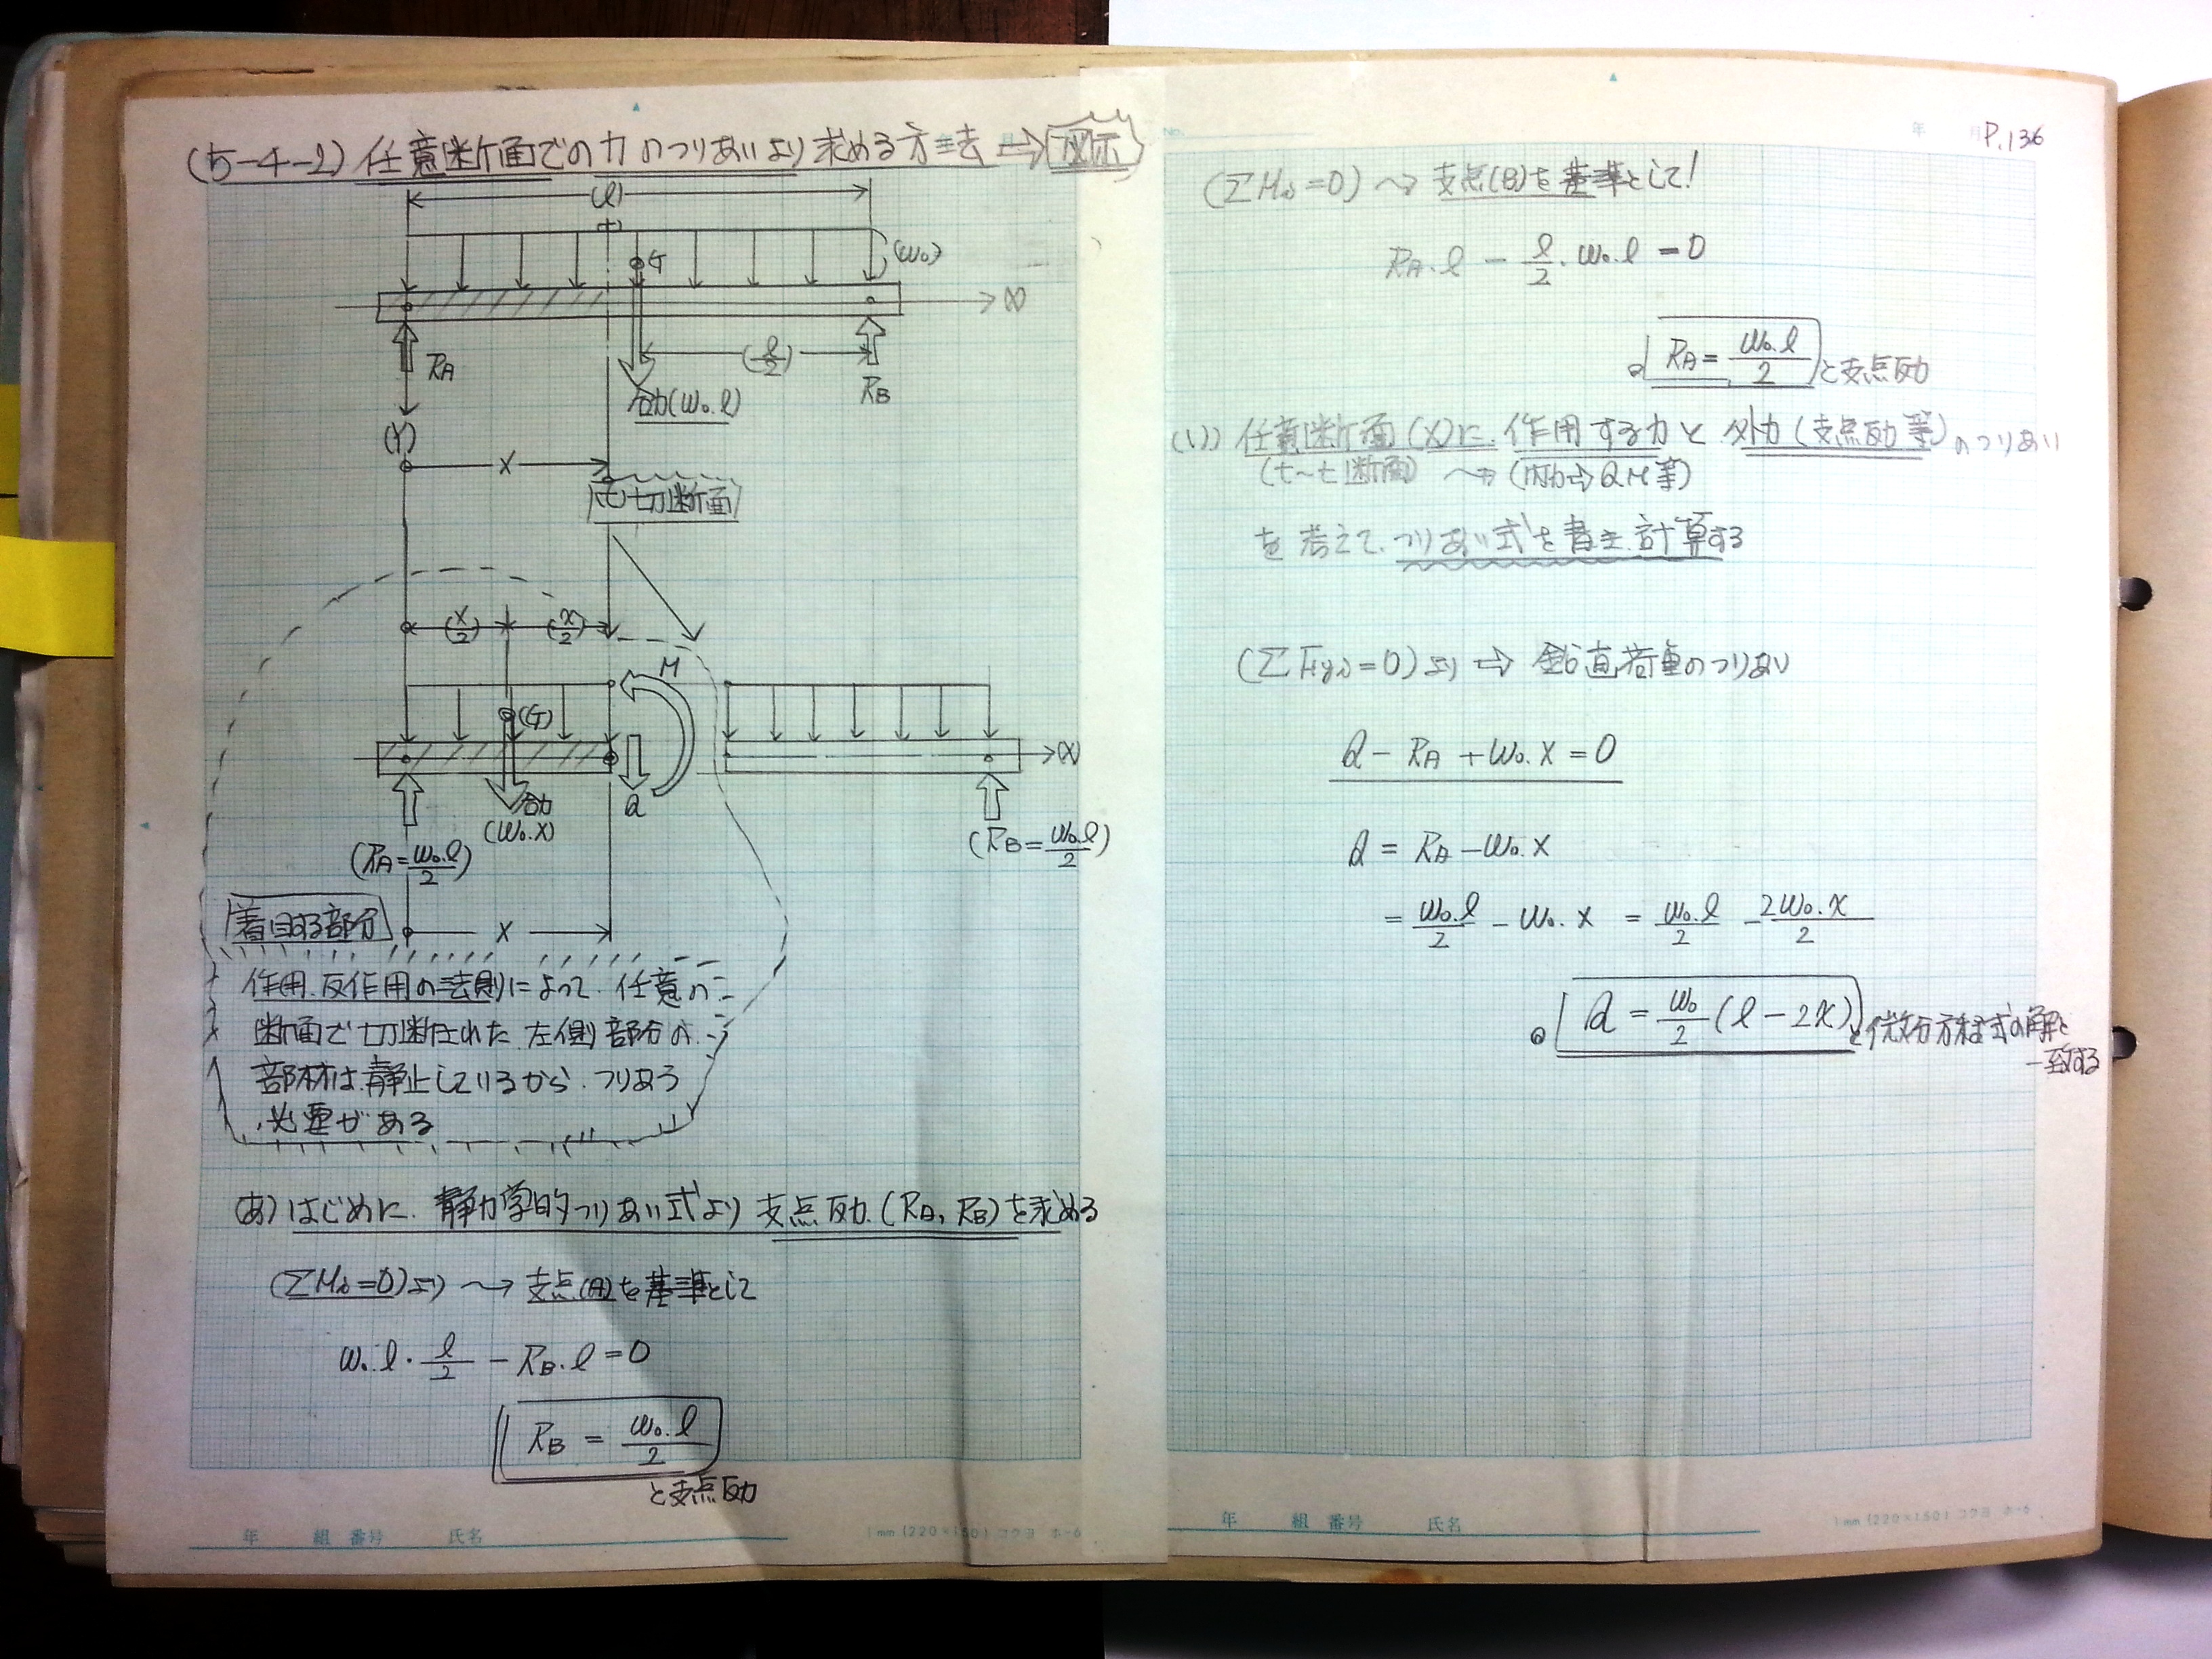 (5-4-2) 任意断面での力のつりあいより求める方法 ⇒
(l)
(t)
G
(w₀)
(x)
RA
(l/2)
RB
合力(w₀.l)
(Y)
x
(t)切断面
(x/2) (x/2)
M
(G)
(x)
Q
合力
(w₀.x)
(RA = w₀.l/2)
(RB = w₀.l/2)
着目する部分
x
作用.反作用の法則によって.任意の
断面で切断された.左側部分の
部材は.静止しているから.つりあう
必要がある
(あ) はじめに.静力学的つりあい式より 支点反力.(RA, RB)を求める
(ΣMi=0)より 〜→ 支点(A)を基準として
w₀.l・l/2 − RB.l = 0
RB = w₀.l/2
と支点反力
No.
年 月
P.136
(ΣMi=0) 〜→ 支点(B)を基準として!
RA.l − l/2.w₀.l = 0
RA = w₀.l/2 と支点反力
(い) 任意断面(x)に.作用する力と.外力(支点反力等)のつりあい
(t〜t断面) 〜→ (内力⇒Q.M等)
を考えて.つりあい式を書き.計算する
(ΣFyi=0)より ⇒ 鉛直荷重のつりあい
Q − RA + w₀.x = 0
Q = RA − w₀.x
= w₀.l/2 − w₀.x = w₀.l/2 − 2w₀.x/2
Q = w₀/2 (l − 2x) と微分方程式の解と
一致する
年 組 番号 氏名
1mm (220×150) コクヨ ホ-6
年 組 番号 氏名
1mm (220×150) コクヨ ホ-6